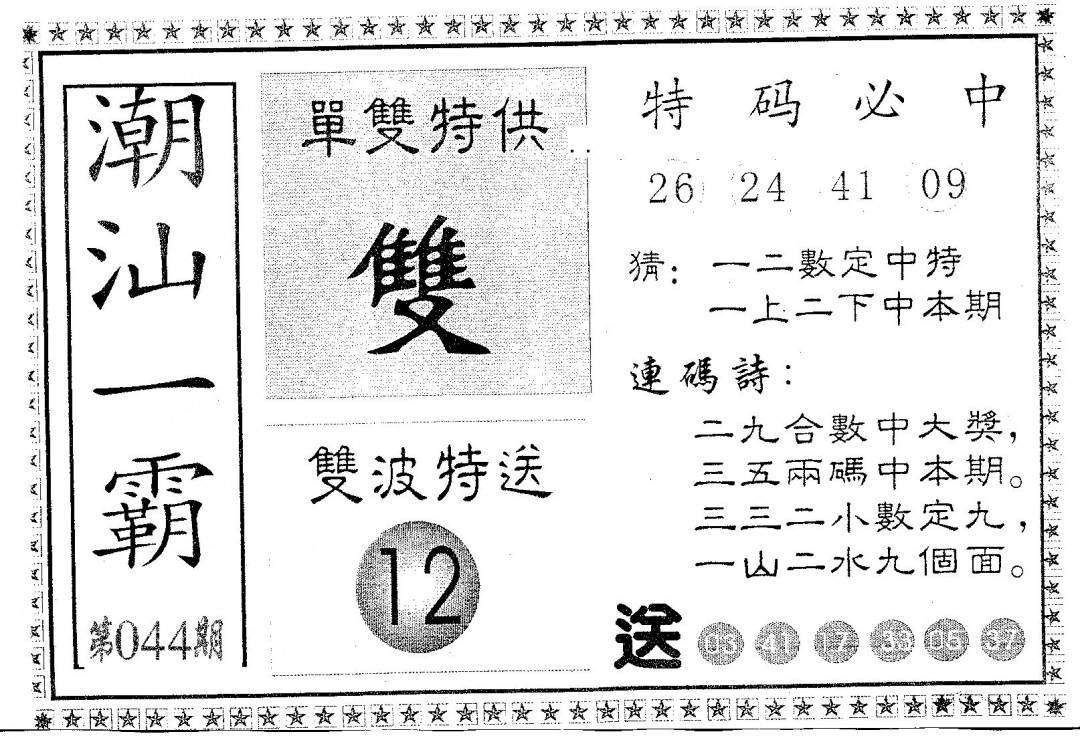 潮汕一霸
第044期
單雙特供
雙
雙波特送
12
特码必中
26 24 41 09
猜：一二數定中特
一上二下中本期
連碼詩：
二九合數中大獎，
三五兩碼中本期。
三三二小數定九，
一山二水九個面。
送 03 41 17 33 05 37